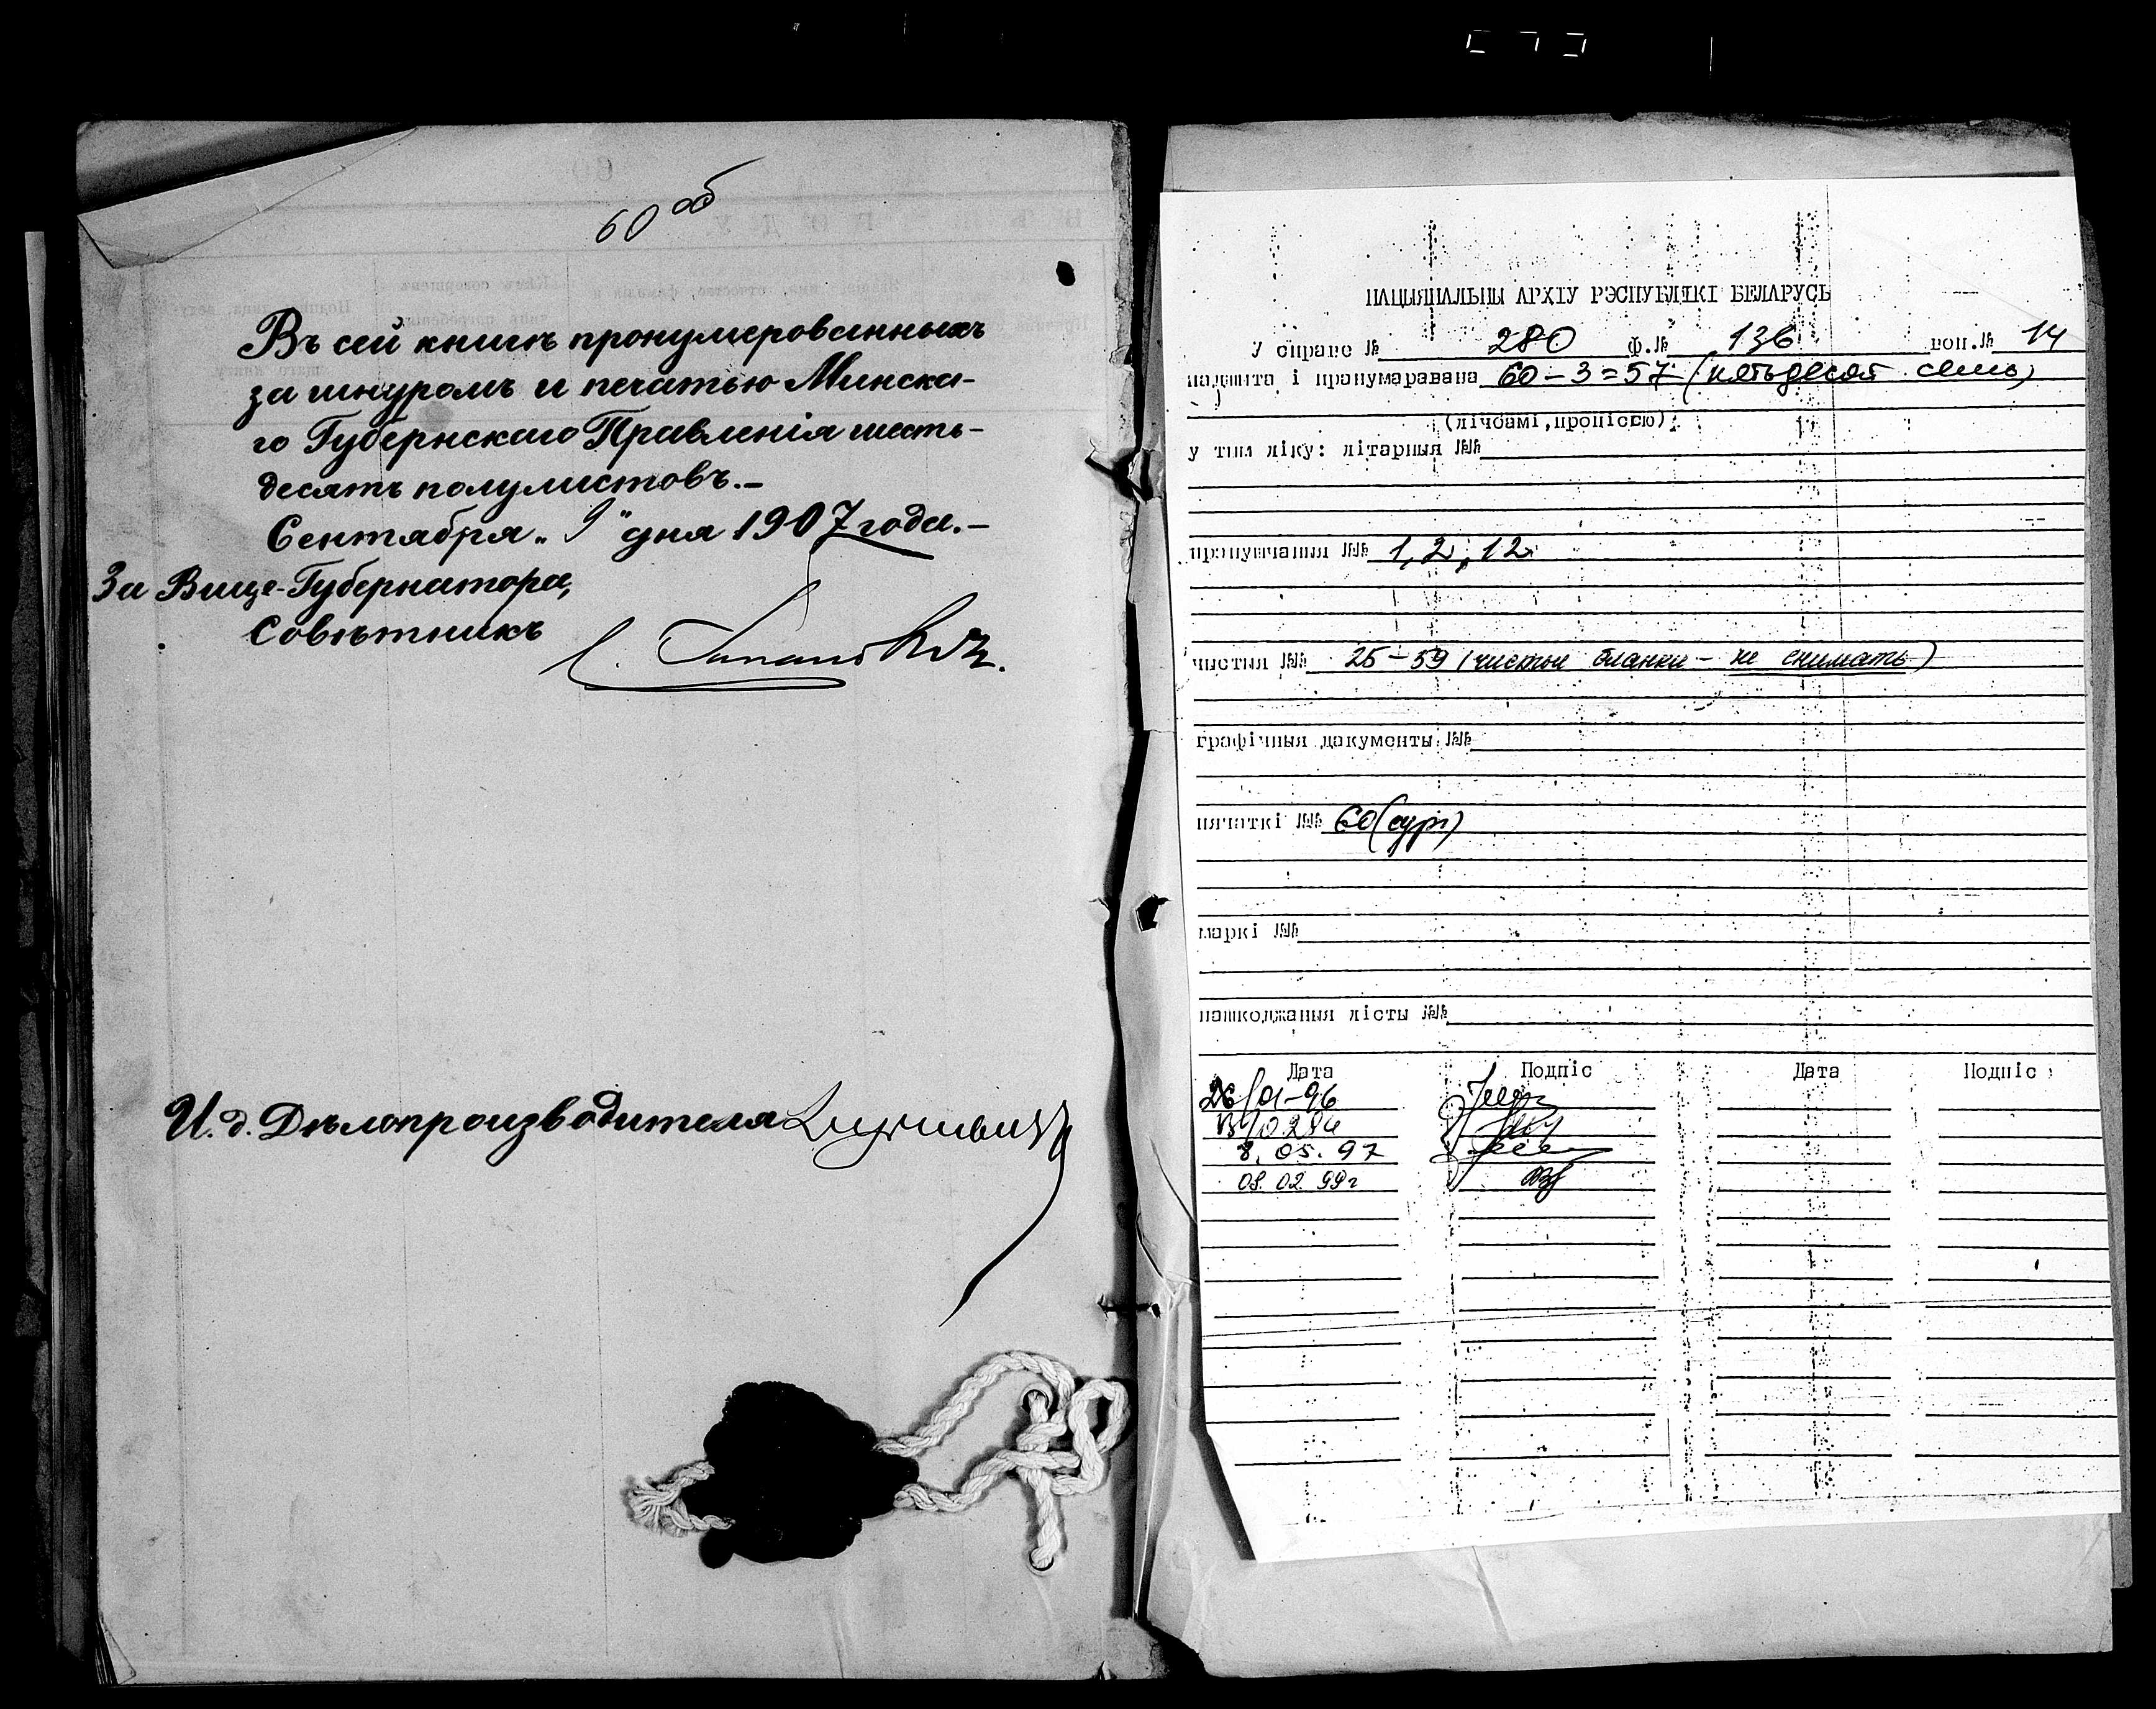 60 об
Въ сей книгѣ пронумерованныхъ
за шнуромъ и печатью Минска-
го Губернскаго Правленія шесть-
десятъ полулистовъ.-
Сентября „9" дня 1907 года.-
За Вице-Губернатора,
Совѣтникъ
И. д. Дѣлопроизводителя
НАЦЫЯНАЛЬНЫ АРХІУ РЭСПУБЛІКІ БЕЛАРУСЬ
У справе № 280 ф.№ 136 воп.№ 14
падшыта і пранумаравана 60-3=57 (пятьдесят семь)
(лічбамі, пропіссю)
у тым ліку: літарныя №№
прапушчаныя №№ 1, 2, 12
чыстыя №№ 25-59 (чистые бланки - не снимать)
графічныя дакументы №№
пячаткі №№ 60 (сург)
маркі №№
пашкоджаныя лісты №№
Дата Подпіс Дата Подпіс
26/01-96
8.05.97
08.02.99г